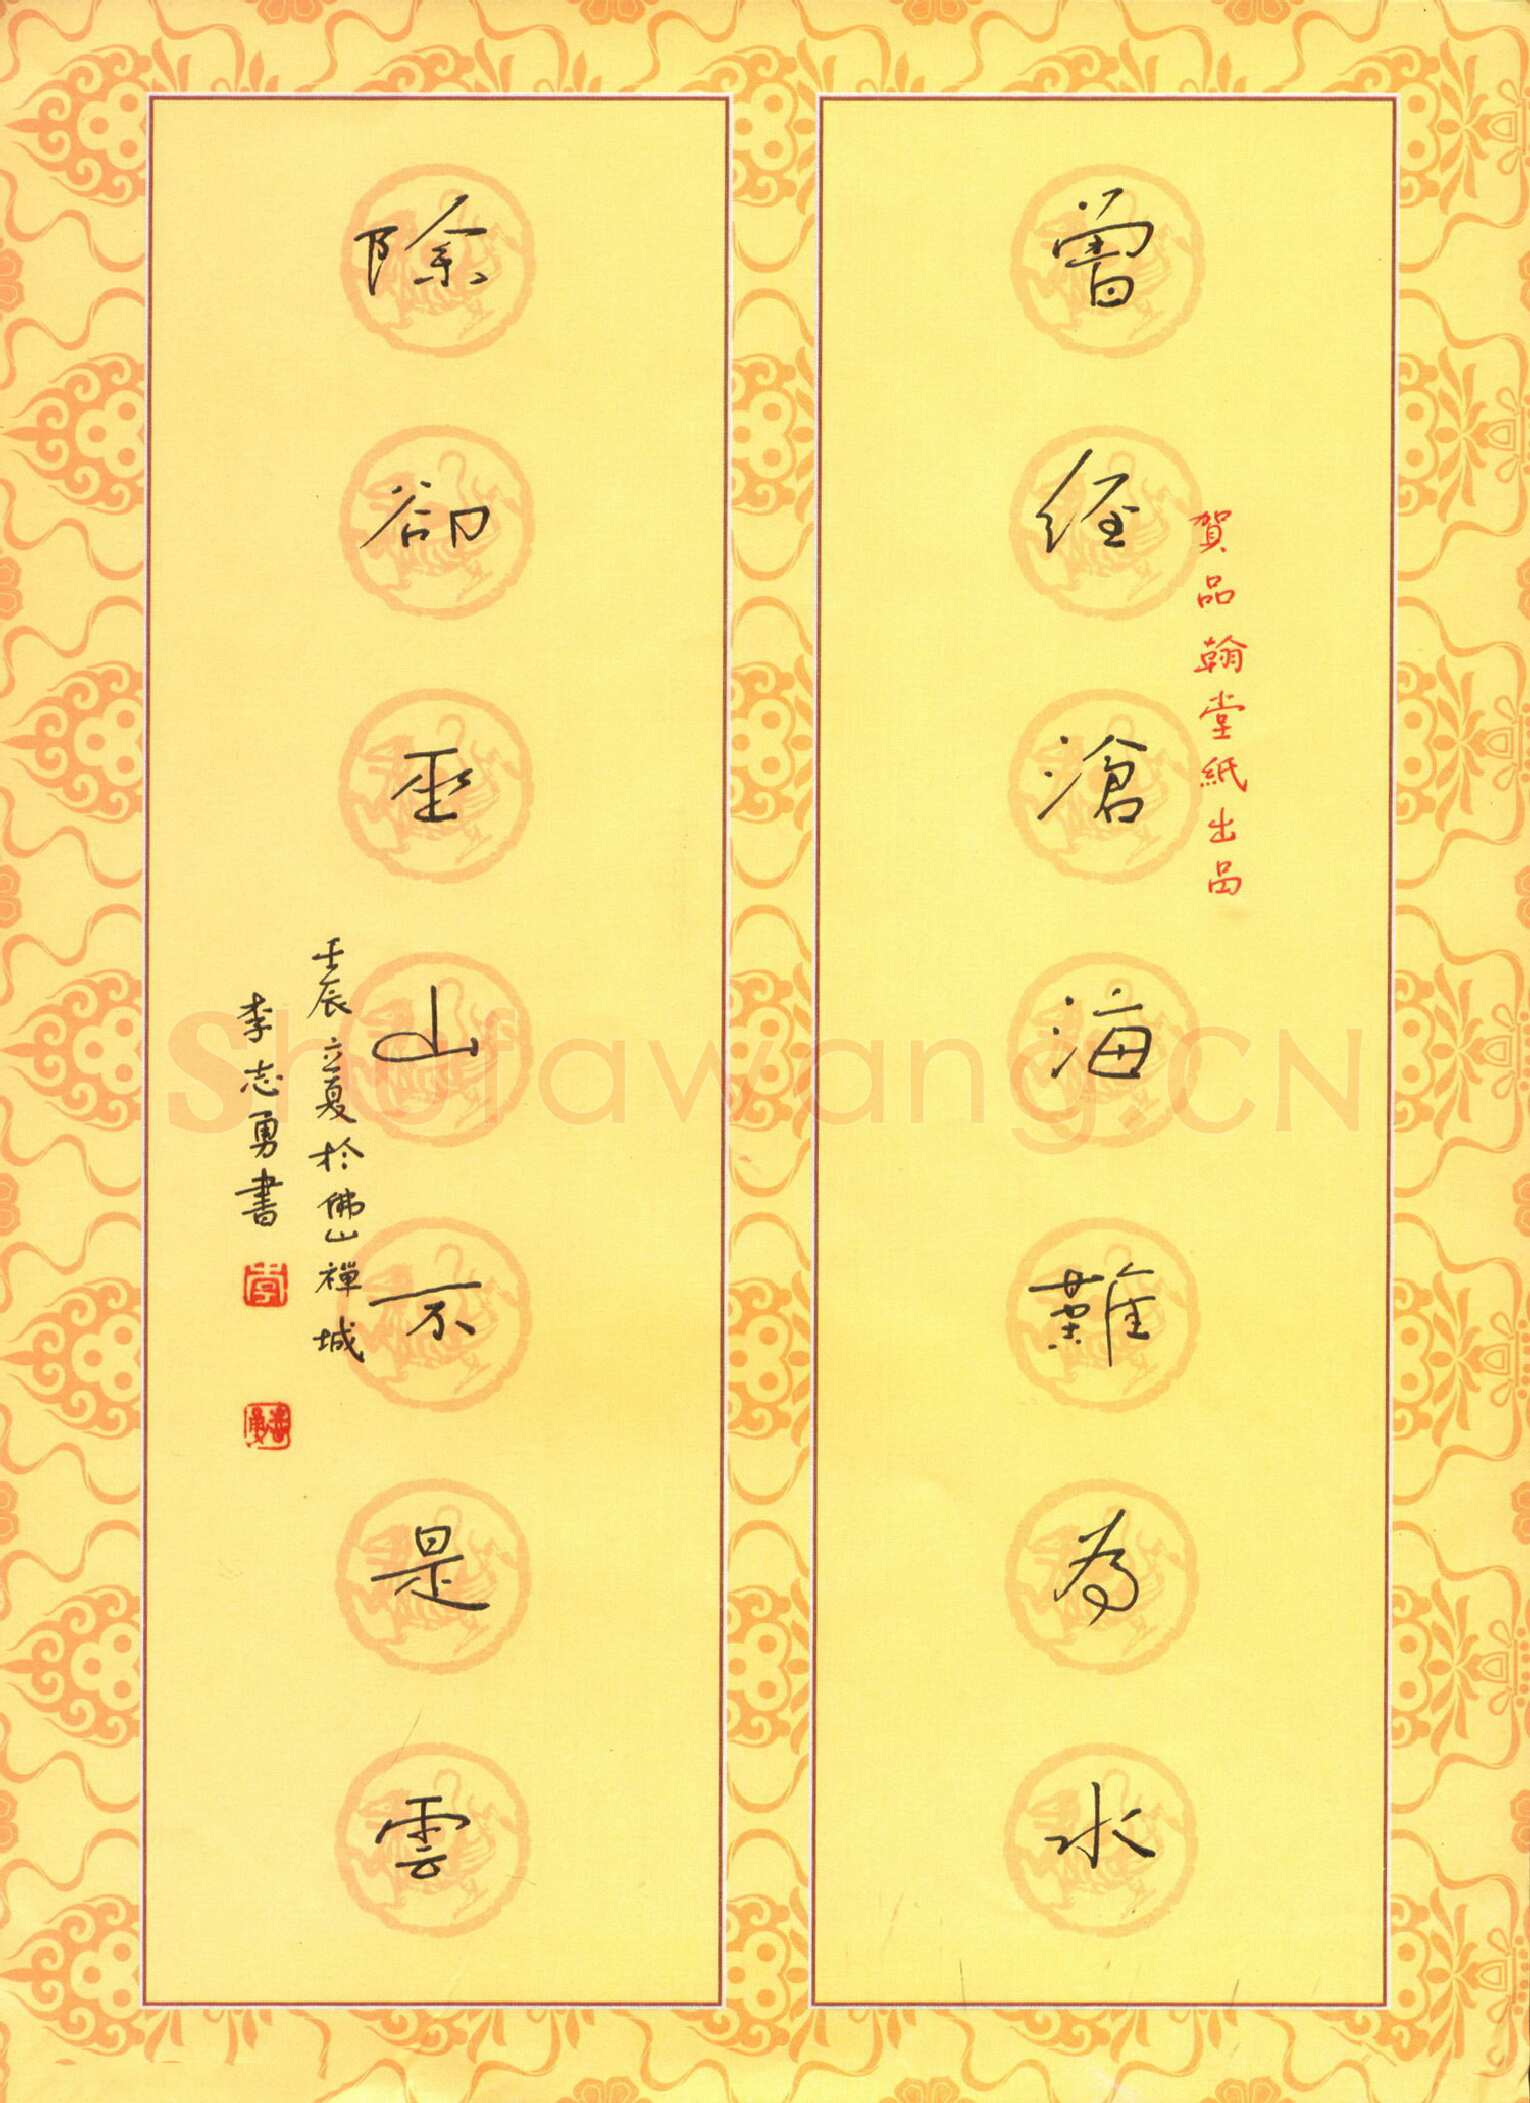 曾經滄海難為水
賀品翰堂紙出品
除卻巫山不是雲
壬辰立夏於佛山禪城
李志勇書
李
Shufawang.CN